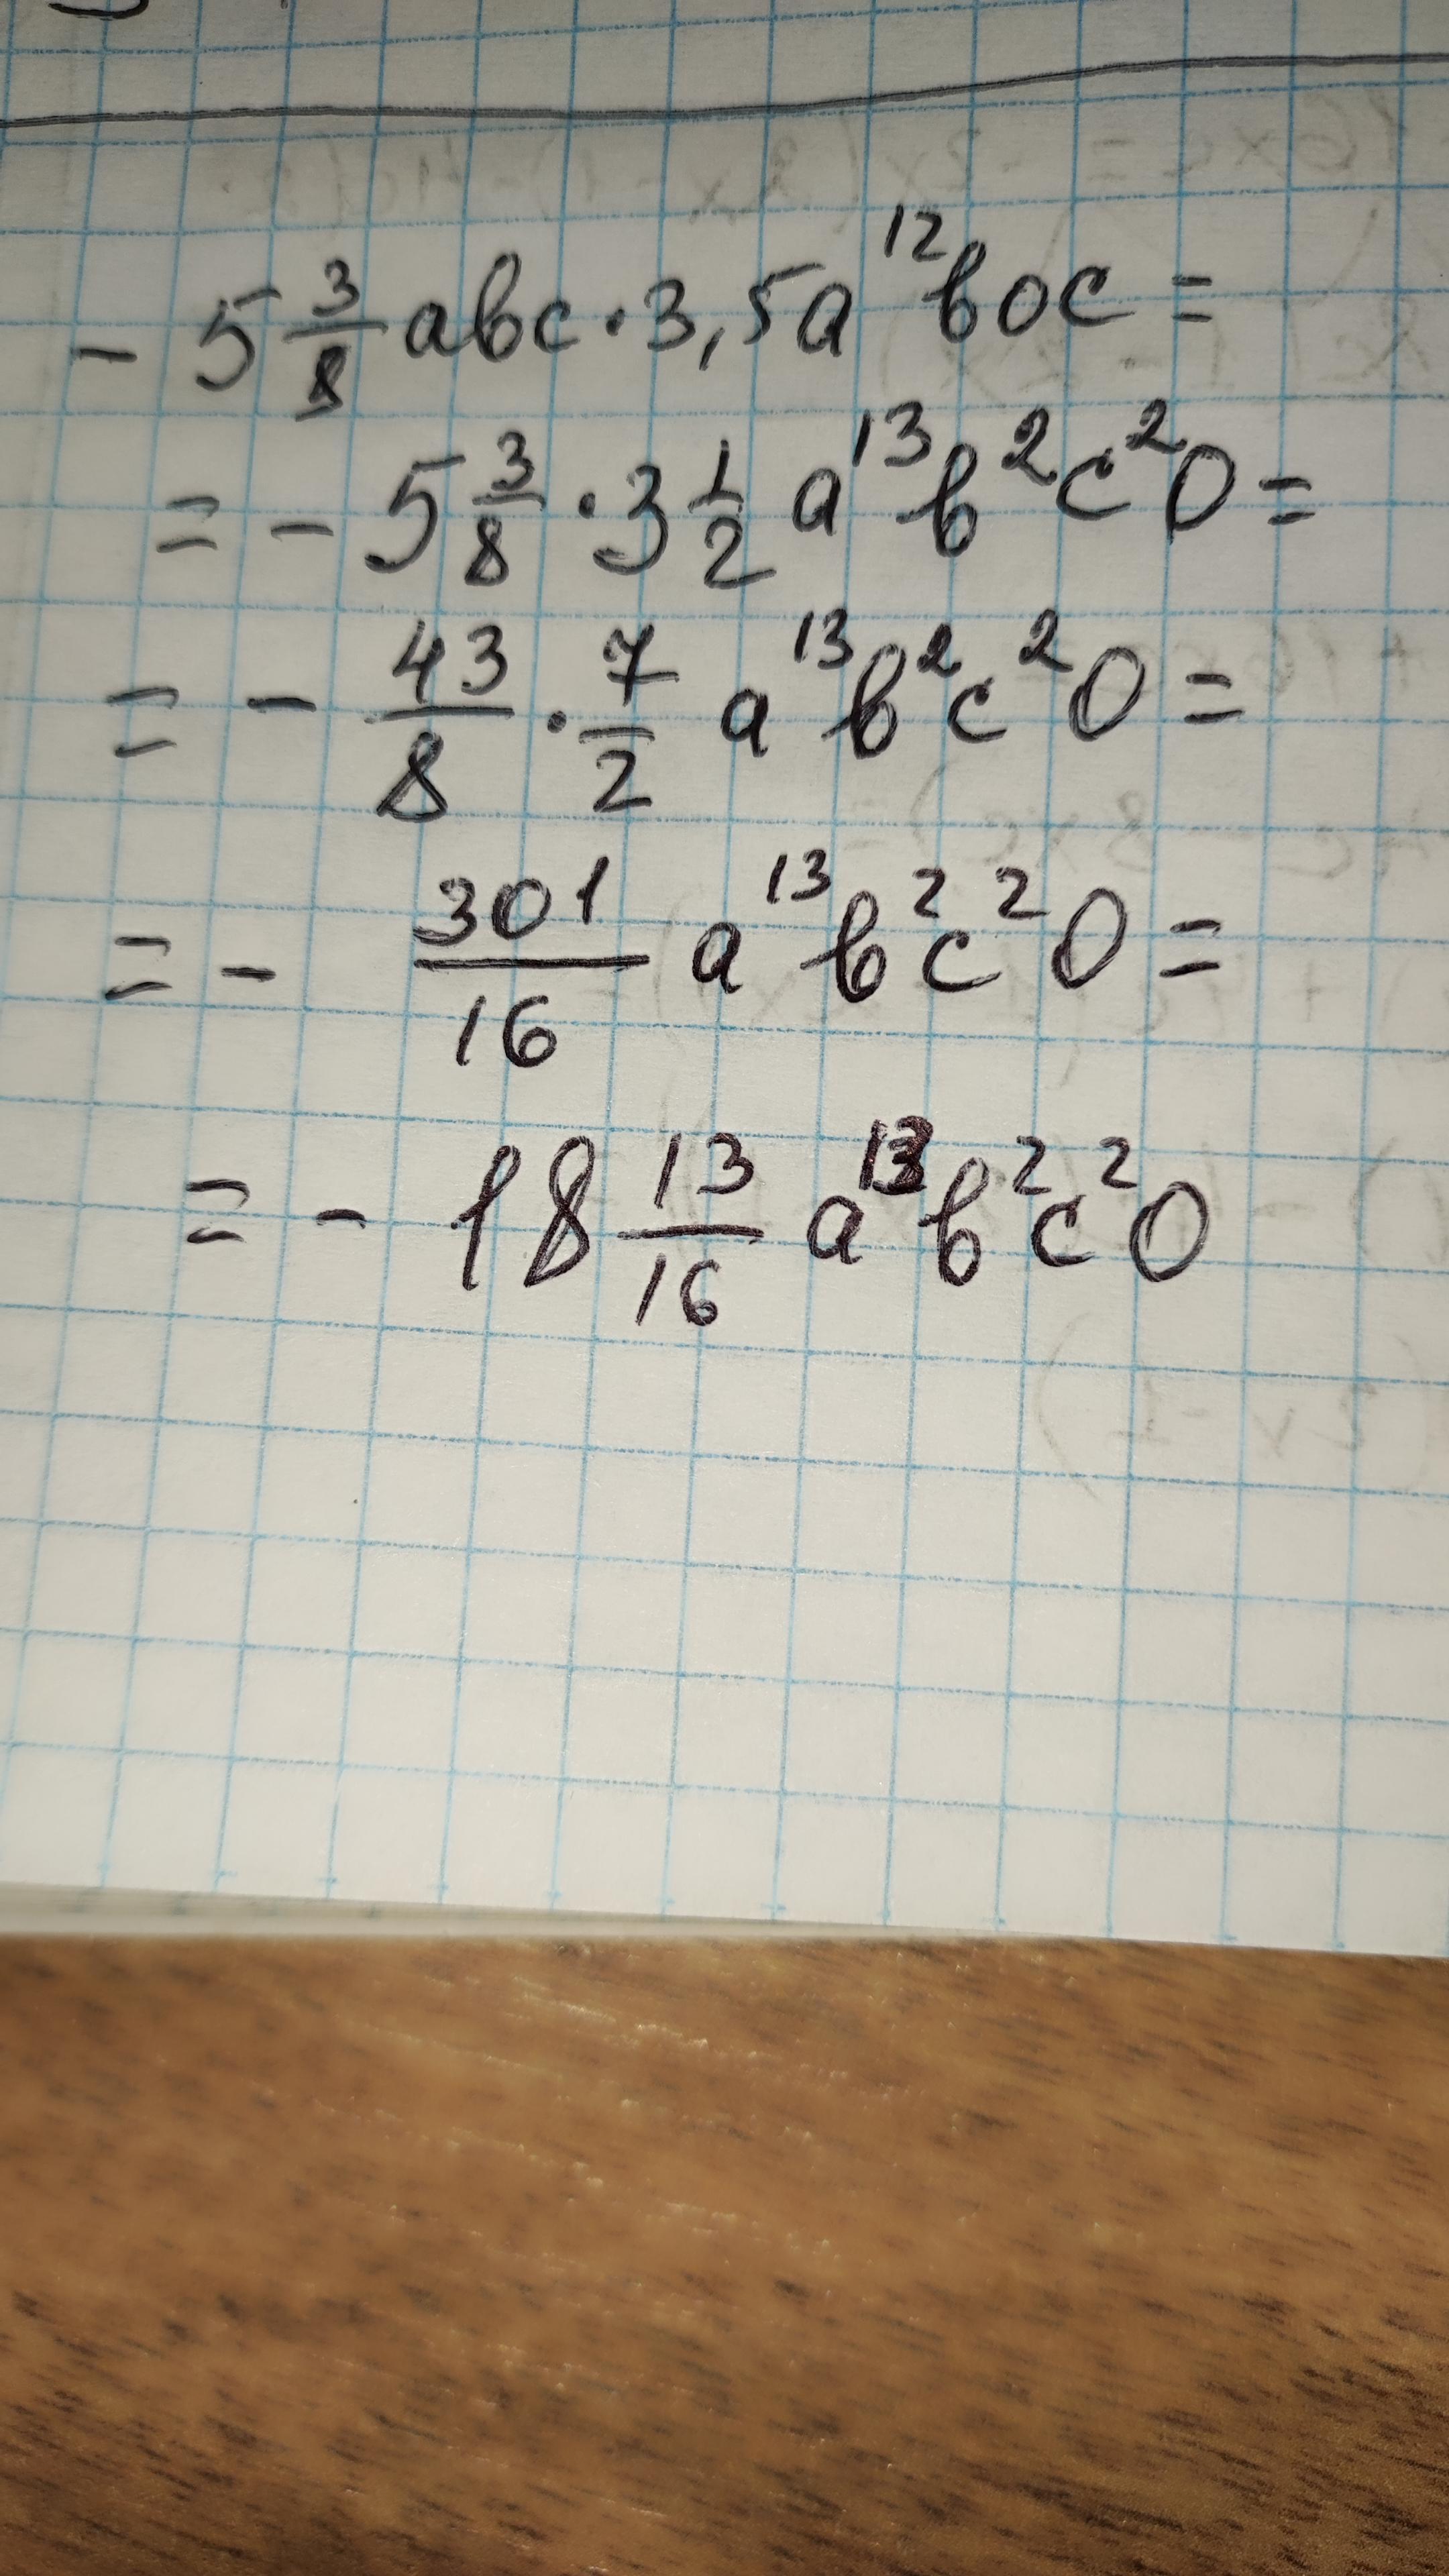 - 5 3/8 abc · 3,5a¹²boc =
= - 5 3/8 · 3 1/2 a¹³b²c²O =
= - 43/8 · 7/2 a¹³b²c²O =
= - 301/16 a¹³b²c²O =
= - 18 13/16 a¹³b²c²O